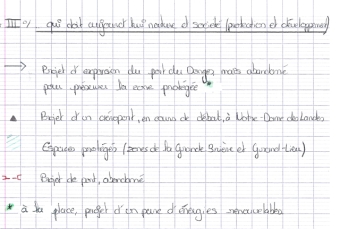 III°/ qui doit aujourd'hui nature et société (protection et développement)
→ Projet d'expansion du port du Donges mais abandonné
pour préserver la zone protégée *
▲ Projet d'un aéroport, en cours de débat, à Notre-Dame des Landes
Espaces protégés (zones de la Grande Brière et Grand-Lieu)
Projet de pont, abandonné
* à la place, projet d'un parc d'énergies renouvelables